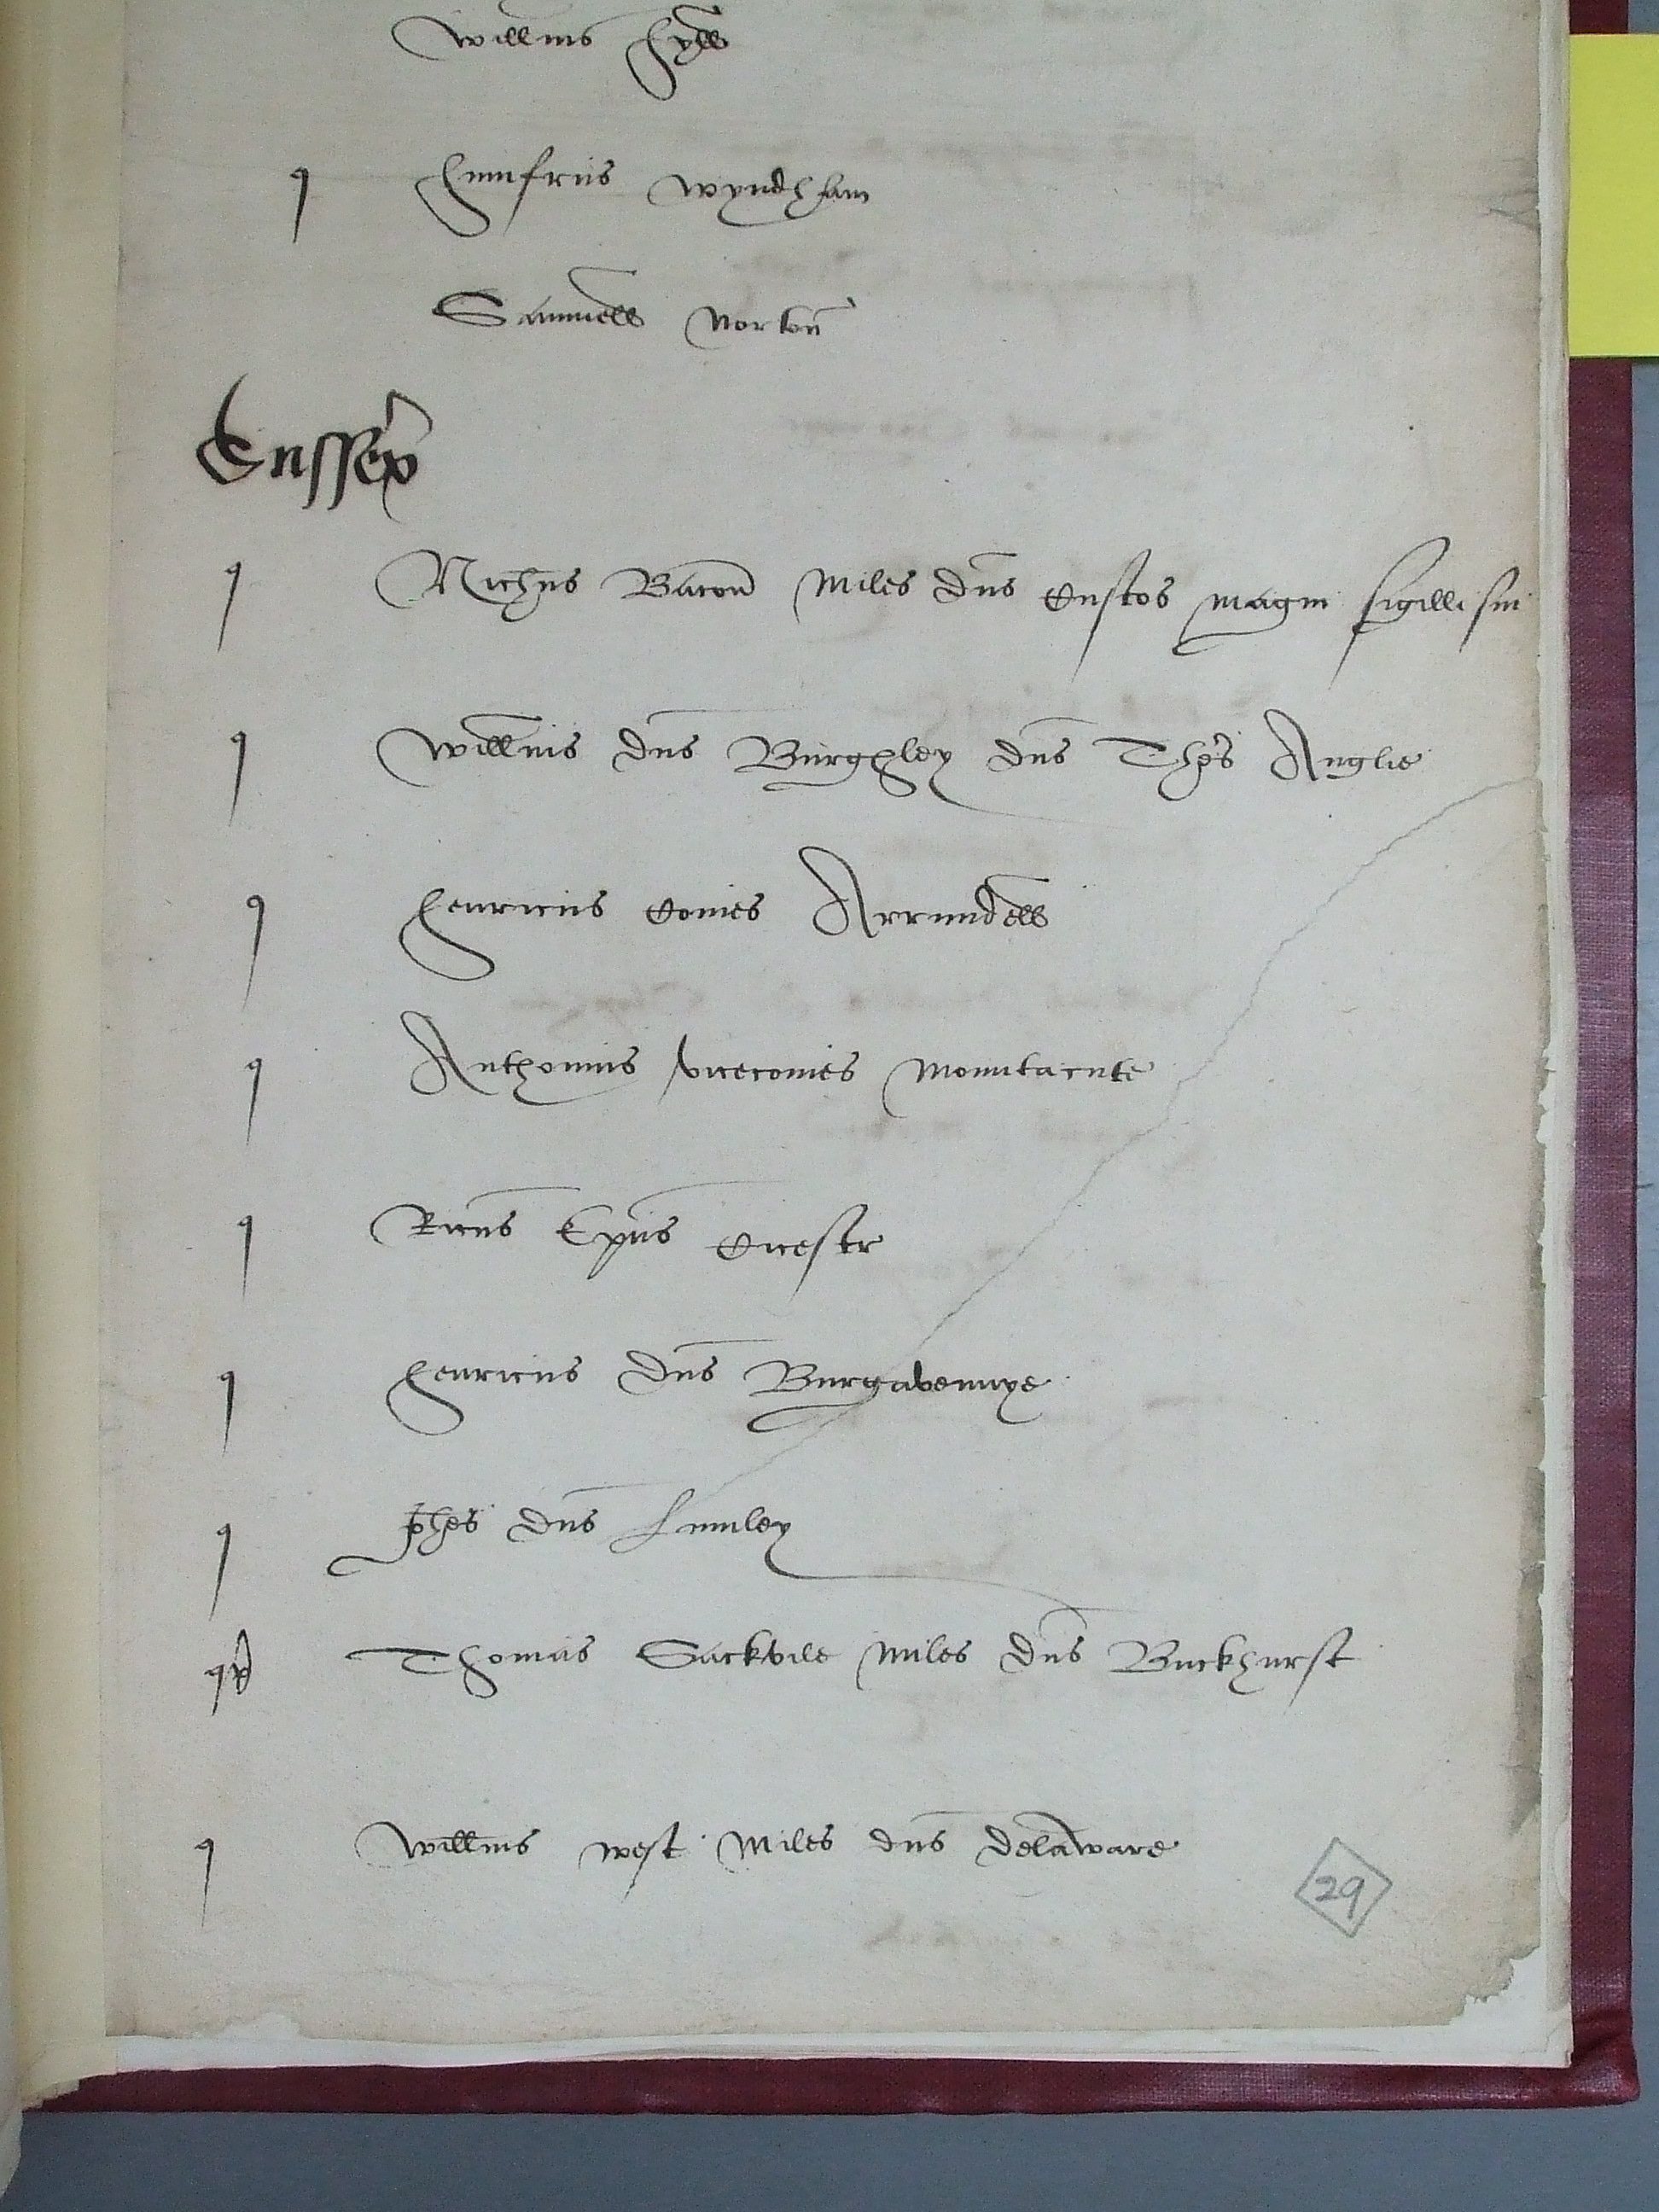 Willms Hyll
q Humfrus Wyndham
Samuell Norton
Sussex
q Nichus Bacon Miles Dns Custos magni sigilli sui
q Willms Dns Burghley Dns Thes Anglie
q Henricus Comes Arrundell
q Anthonius vicecomes Mountacute
q Ricus Epus Cicestr
q Henricus Dns Burgavennye
q Johes Dns Lumley
q Thomas Sackvile Miles Dns Buckhurst
q Willms West Miles dns Delaware
29